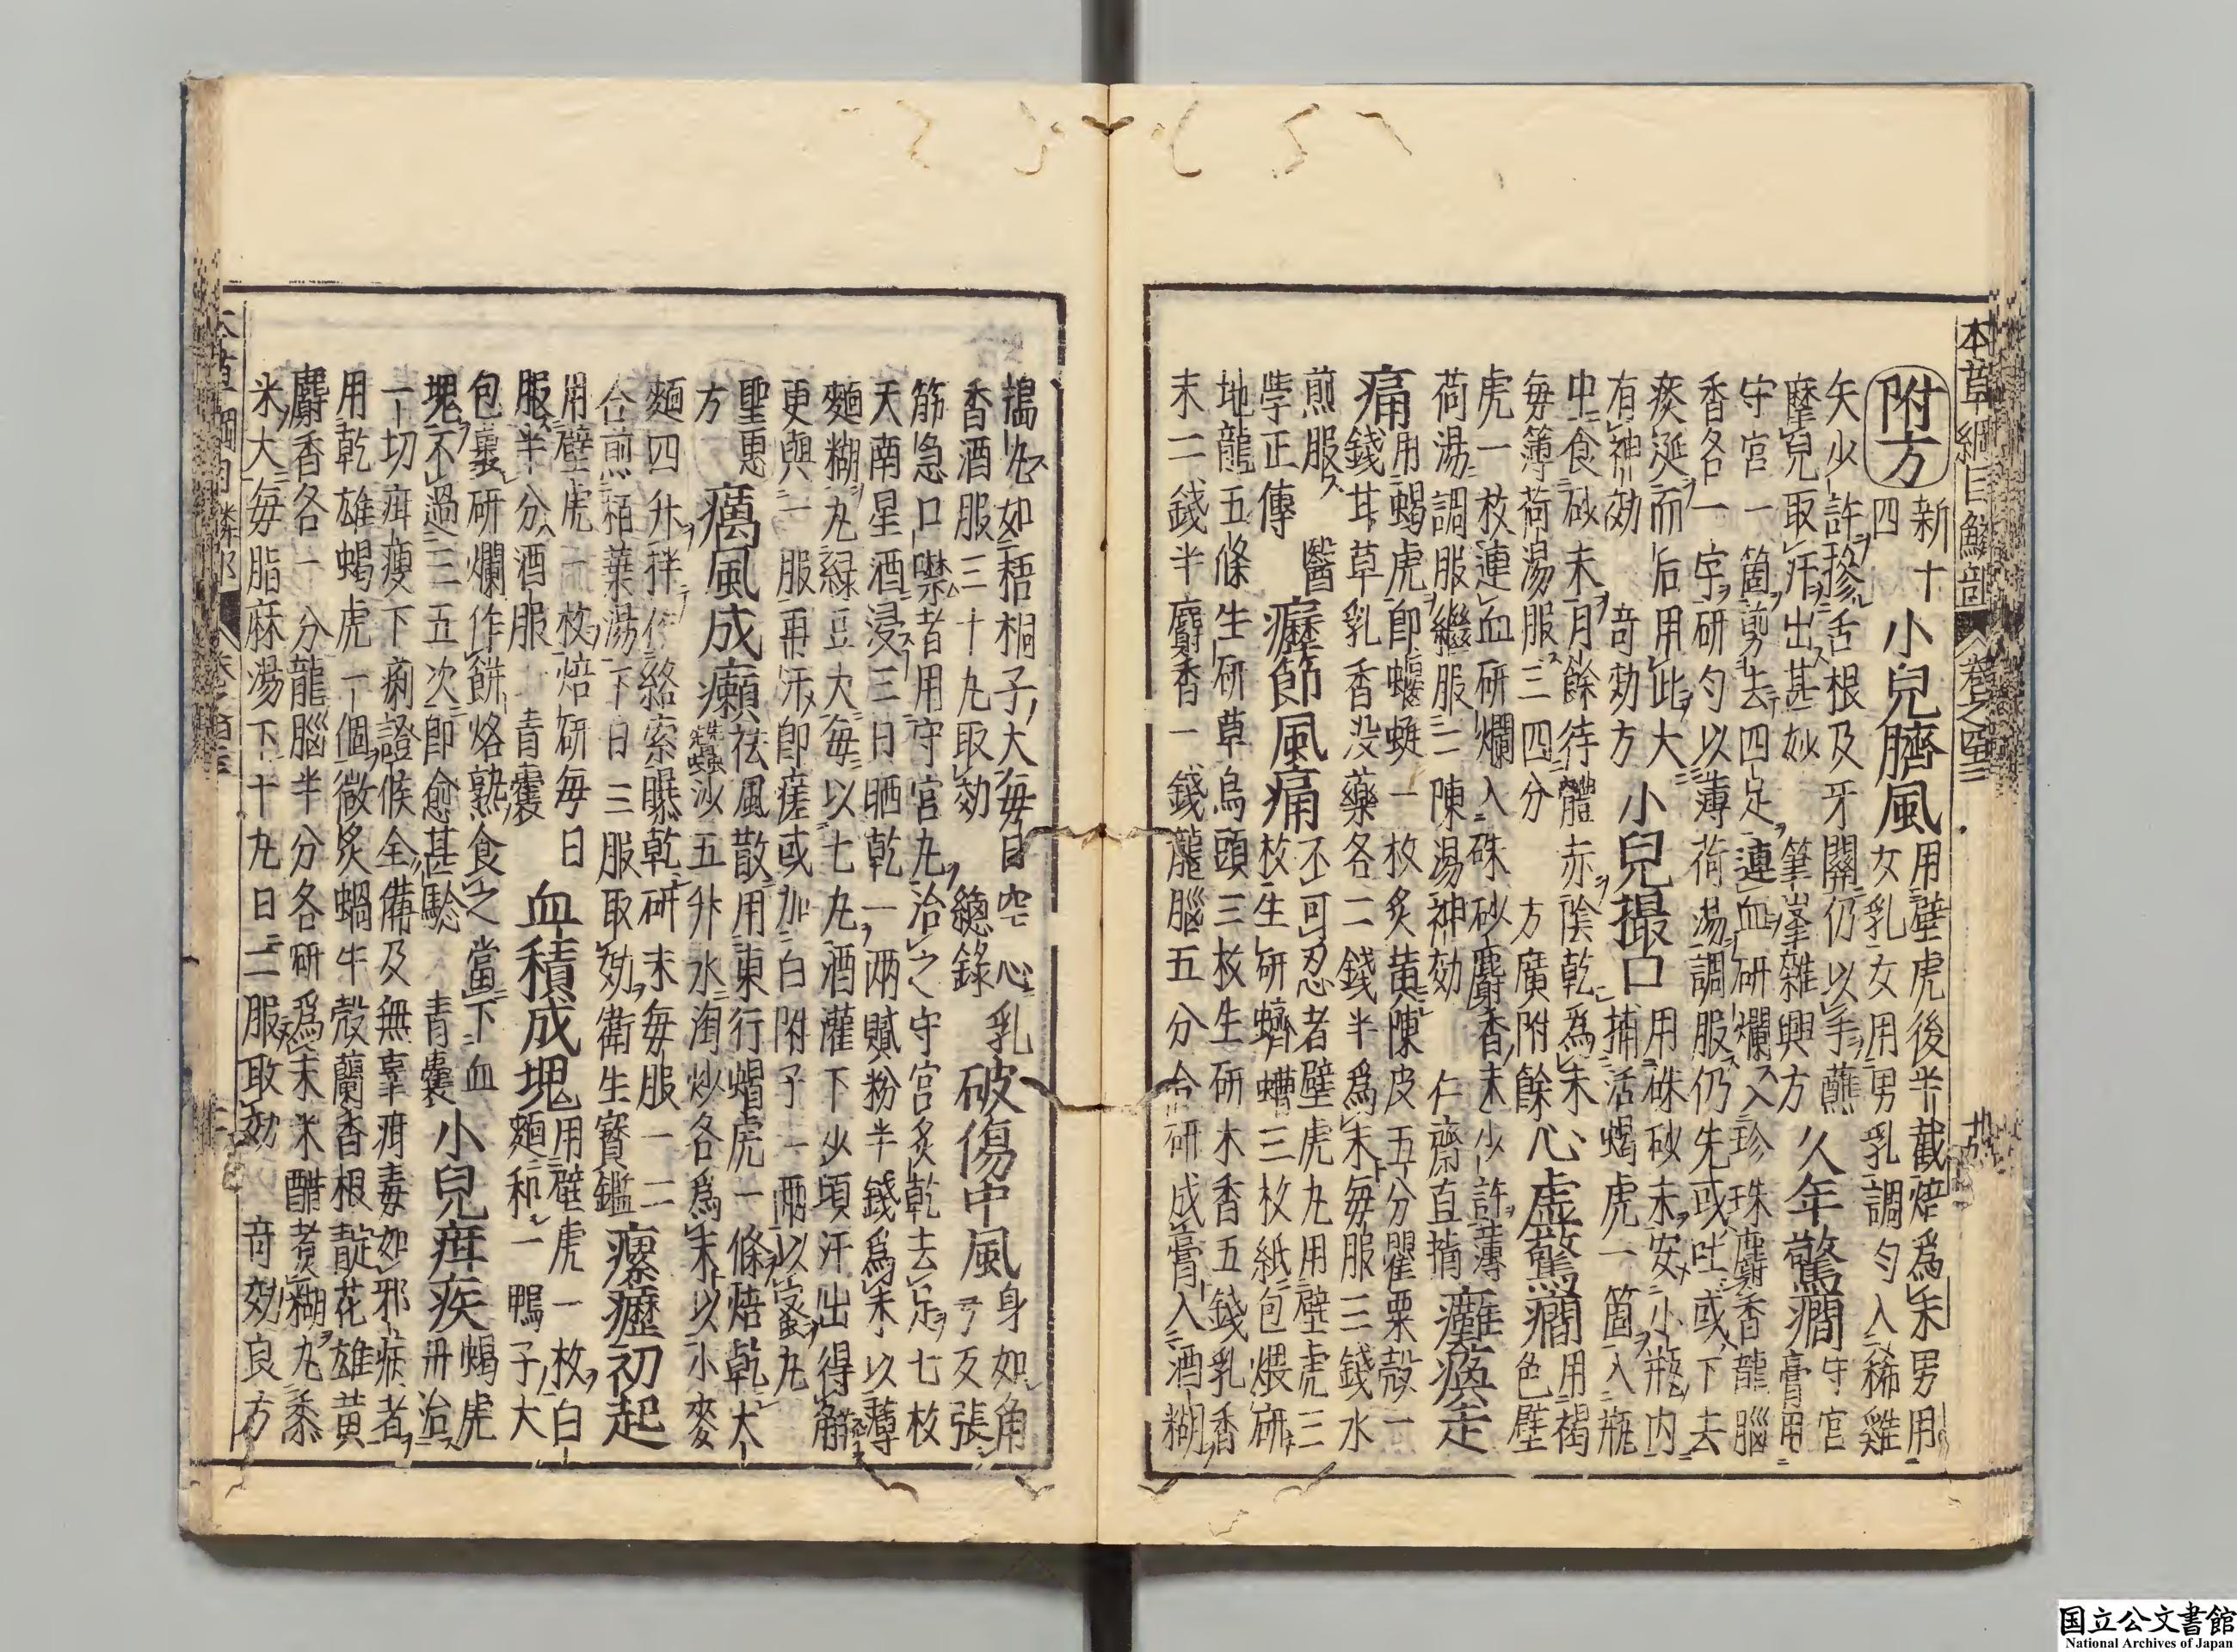 本草綱目鱗部 卷之四十三
附方 新十四 小兒臍風 用壁虎後半截焙爲末男用
女乳女用男乳調勻入稀雞
矢少許摻舌根及牙關仍以手蘸
摩兒取汗出甚妙 筆峯雜興方 久年驚癇 守宮膏用
守宮一箇剪去四足連血研爛入珍珠麝香龍腦
香各一字研勻以薄荷湯調服仍先或吐或下去
痰涎而后用此大
有神効 奇効方 小兒撮口 用硃砂末安小瓶内
捕活蝎虎一箇入瓶
中食砂末月餘待體赤陰乾爲末
每簿荷湯服三四分 方廣附餘 心虛驚癇 用褐色壁
虎一枚連血研爛入硃砂麝香末少許薄
荷湯調服繼服二陳湯神効 仁齋直指 癱瘓走
痛 用蝎虎即蝘蜓一枚炙黄陳皮五分罌粟殼一
錢甘草乳香没藥各二錢半爲末每服三錢水
煎服 醫學正傳 癧節風痛 不可忍者壁虎丸用壁虎三
枚生研蠐螬三枚紙包煨研
地龍五條生研草烏頭三枚生研木香五錢乳香
末二錢半麝香一錢龍腦五分合研成膏入酒糊
擣丸如梧桐子大每日空心乳
香酒服三十丸取効 總錄 破傷中風 身如角
弓反張
筋急口噤者用守宮丸治之守宮炙乾去足七枚
天南星酒浸三日晒乾一兩膩粉半錢爲末以薄
麵糊丸緑豆大每以七丸酒灌下少頃汗出得解
更與一服再汗即瘥或加白附子一兩以蜜丸
聖惠方 癘風成癩 祛風散用東行蝎虎一條焙乾大
蠶沙五升水淘炒各爲末以小麥
麵四升拌作絡索曝乾研末每服一二
合煎柏葉湯下日三服取効 衛生寳鑑 瘰癧初起
用壁虎一枚焙研每日
服半分酒服 青囊 血積成塊 用壁虎一枚白
麵和一鴨子大
包裹研爛作餅烙熟食之當下血
塊不過三五次即愈甚驗 青囊 小兒疳疾 蝎虎
丹治
一切疳瘦下痢證候全備及無辜疳毒如邪病者
用乾雄蝎虎一個微炙蝸牛殼蘭香根靛花雄黃
麝香各一分龍腦半分各研爲末米醋煮糊丸黍
米大每脂麻湯下十丸日二服取効 奇効良方
国立公文書館
National Archives of Japan